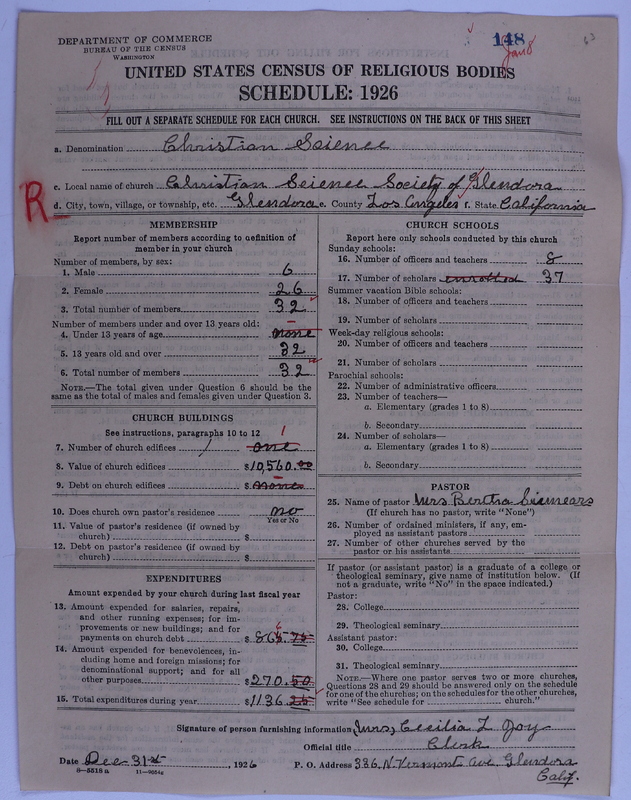 DEPARTMENT OF COMMERCE
BUREAU OF THE CENSUS
WASHINGTON
148
Jan 8
63
UNITED STATES CENSUS OF RELIGIOUS BODIES
SCHEDULE: 1926
FILL OUT A SEPARATE SCHEDULE FOR EACH CHURCH. SEE INSTRUCTIONS ON THE BACK OF THIS SHEET
a. Denomination Christian Science
c. Local name of church Christian Science Society of Glendora
R
d. City, town, village, or township, etc. Glendora e. County Los Angeles f. State California
MEMBERSHIP
Report number of members according to definition of member in your church
Number of members, by sex:
1. Male 6
2. Female 26
3. Total number of members 32
Number of members under and over 13 years old:
4. Under 13 years of age none
5. 13 years old and over 32
6. Total number of members 32
NOTE.—The total given under Question 6 should be the same as the total of males and females given under Question 3.
CHURCH BUILDINGS
See instructions, paragraphs 10 to 12
7. Number of church edifices one 1
8. Value of church edifices $10,560.00
9. Debt on church edifices $ none
10. Does church own pastor's residence? no
Yes or No
11. Value of pastor's residence (if owned by church) $
12. Debt on pastor's residence (if owned by church) $
EXPENDITURES
Amount expended by your church during last fiscal year
13. Amount expended for salaries, repairs, and other running expenses; for improvements or new buildings; and for payments on church debt $ 865.75
6
14. Amount expended for benevolences, including home and foreign missions; for denominational support; and for all other purposes $270.50
15. Total expenditures during year $1136.25
CHURCH SCHOOLS
Report here only schools conducted by this church
Sunday schools:
16. Number of officers and teachers 8
17. Number of scholars enrolled 37
Summer vacation Bible schools:
18. Number of officers and teachers
19. Number of scholars
Week-day religious schools:
20. Number of officers and teachers
21. Number of scholars
Parochial schools:
22. Number of administrative officers
23. Number of teachers—
a. Elementary (grades 1 to 8)
b. Secondary
24. Number of scholars—
a. Elementary (grades 1 to 8)
b. Secondary
PASTOR
25. Name of pastor Mrs Bertha
(If church has no pastor, write "None")
26. Number of ordained ministers, if any, employed as assistant pastors
27. Number of other churches served by the pastor or his assistants
If pastor (or assistant pastor) is a graduate of a college or theological seminary, give name of institution below. (If not a graduate, write "No" in the space indicated.)
Pastor:
28. College
29. Theological seminary
Assistant pastor:
30. College
31. Theological seminary
NOTE.—Where one pastor serves two or more churches, Questions 28 and 29 should be answered only on the schedule for one of the churches; on the schedules for the other churches, write "See schedule for church."
Signature of person furnishing information Mrs, Cecilia L Joy
Official title Clerk
Date Dec 31st, 1926 P. O. Address 386, N. Vermont Ave Glendora
Calif.
8—5518 a 11—9054a